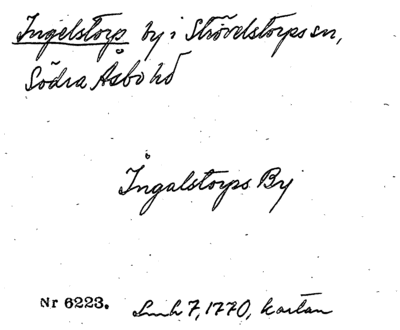 Ingelstorp by i Strövelstorps sn,
Södra Åsbo hd
Ingalstorps By
Nr 6223. Lmk 7, 1770, kartan